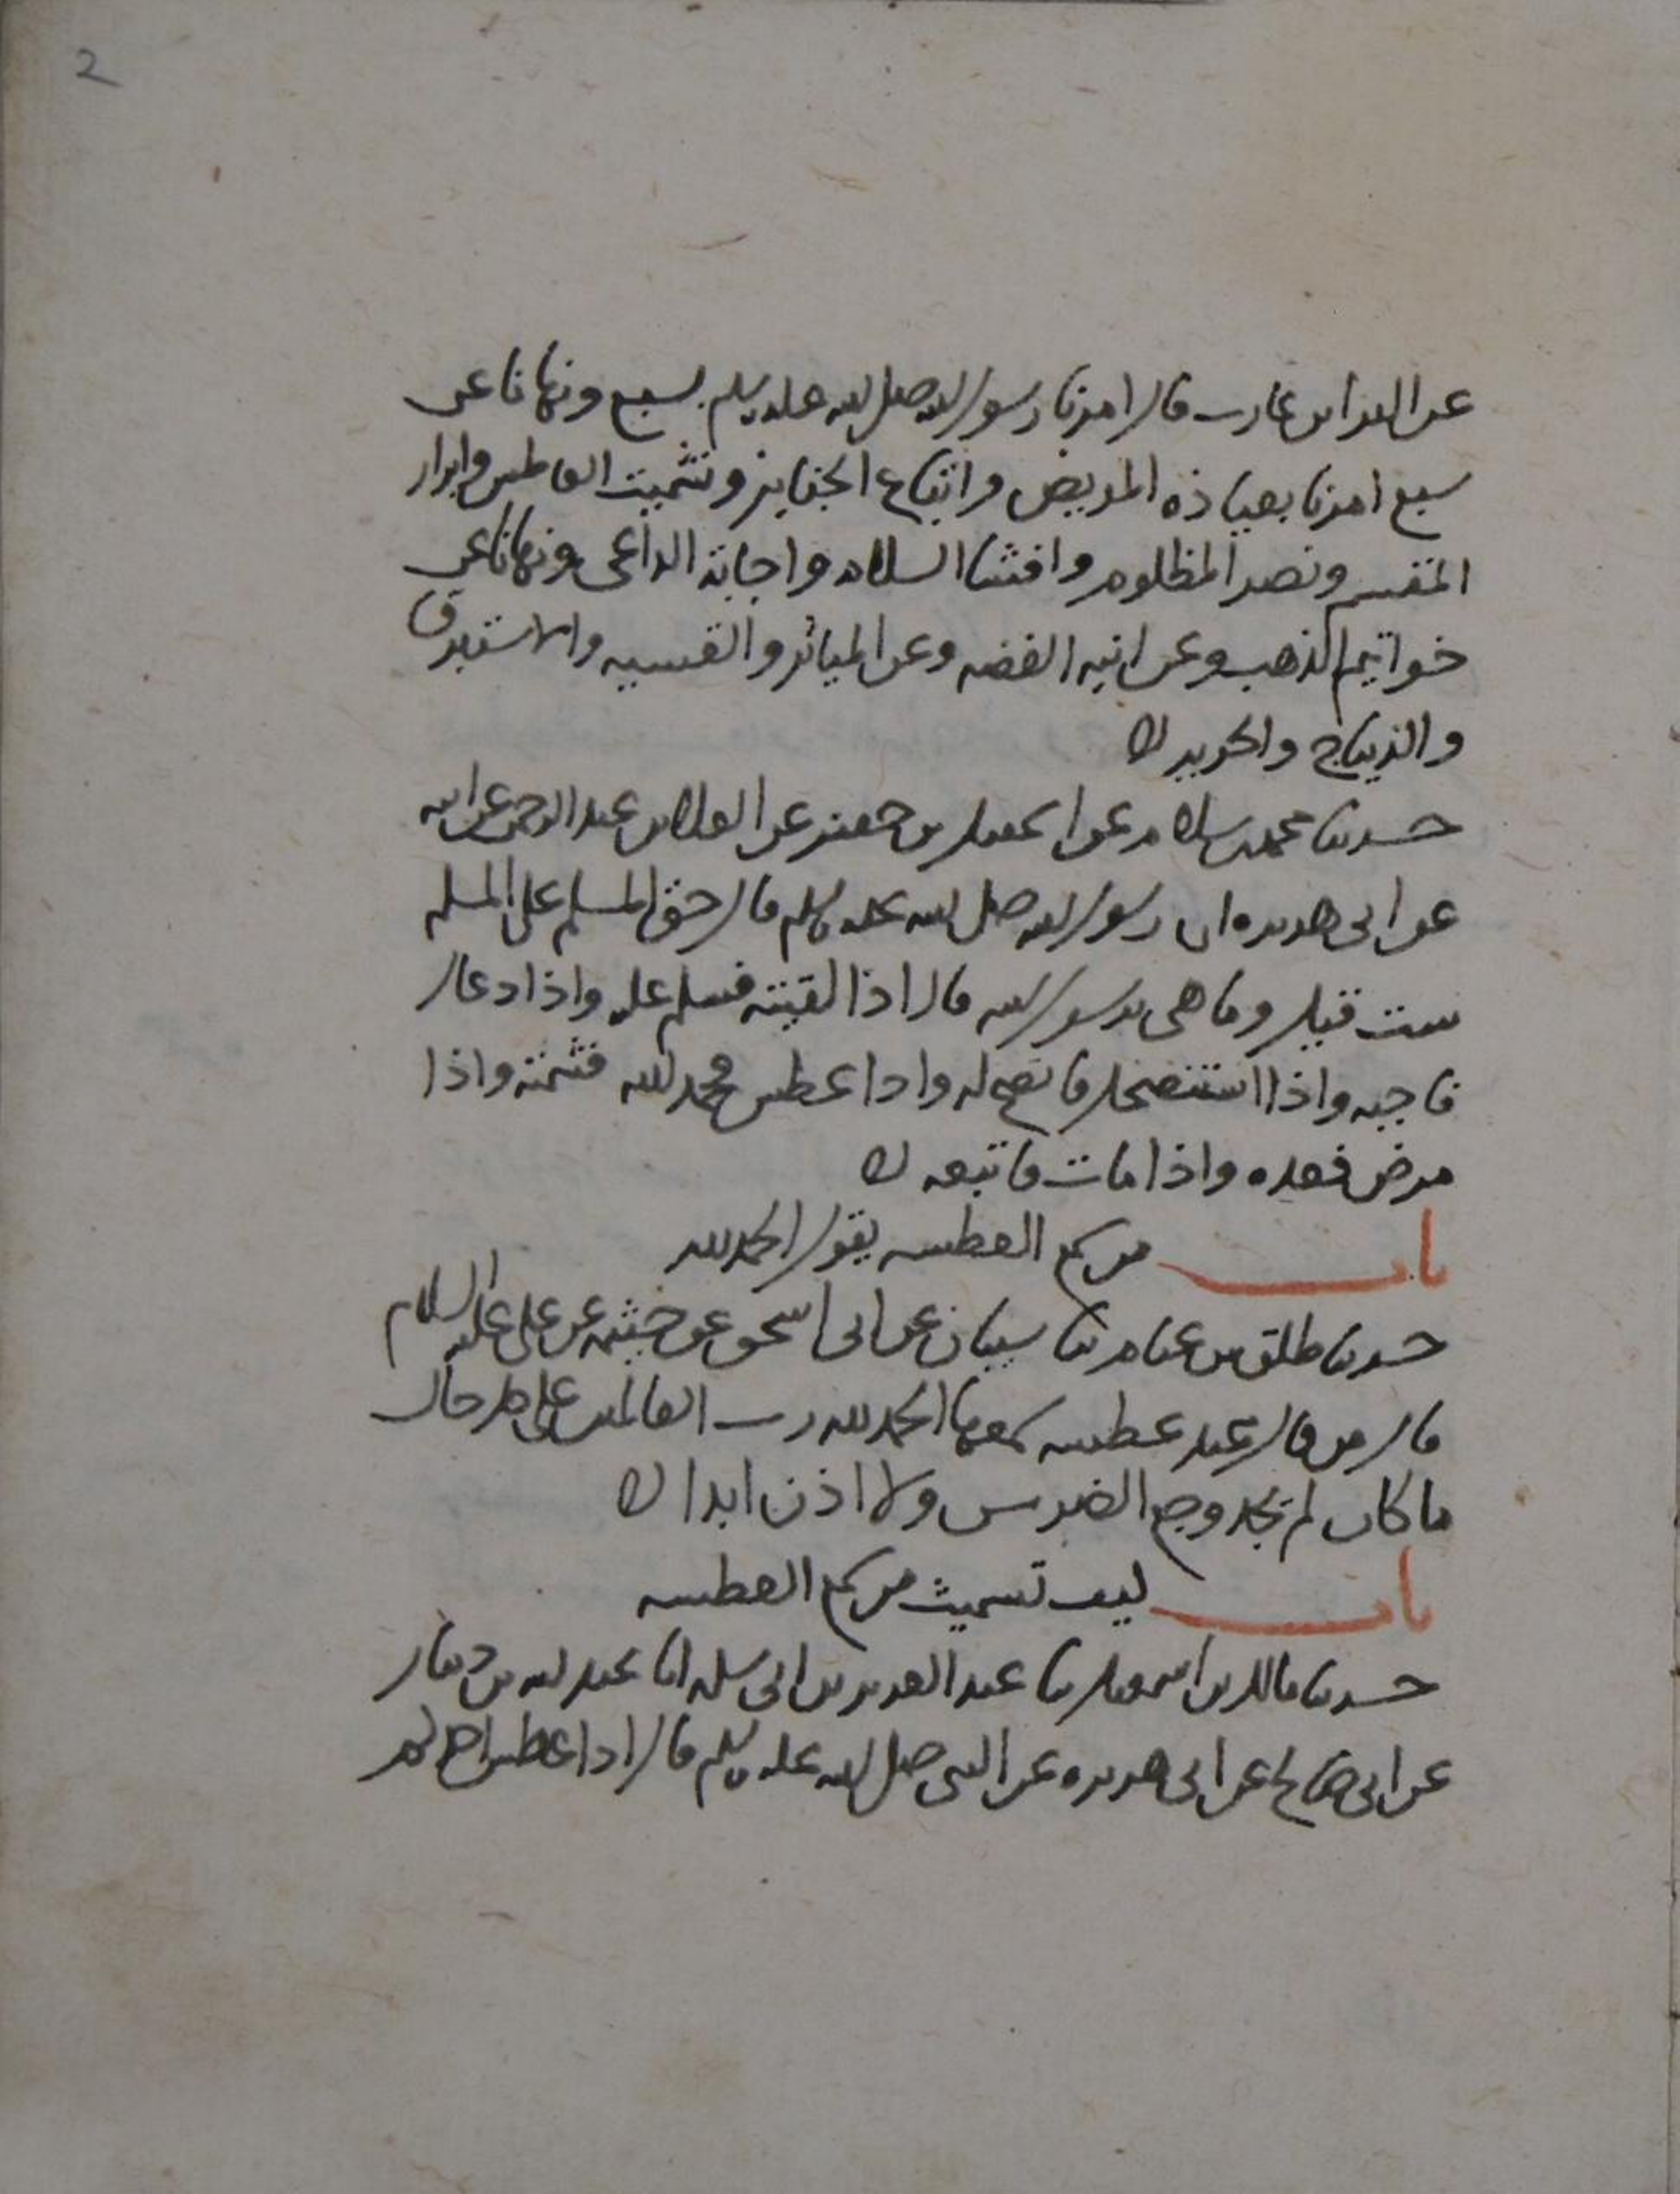 2
عن البراء بن عازب قال امرنا رسول الله صلى الله عليه وسلم بسبع ونهانا عن
سبع امرنا بعيادة المريض واتباع الجنايز وتشميت العاطس وابرار
المقسم ونصر المظلوم وافشا السلام واجابة الداعي ونهانا عن
خواتيم الذهب وعن انيه الفضه وعن المياثر والقسيه والاستبرق
والديباج والحرير
حدثنا محمد بن سلام عن اسمعيل بن جعفر عن العلا بن عبد الرحمن عن ابيه
عن ابي هريره ان رسول الله صلى الله عليه وسلم قال حق المسلم على المسلم
ست قيل وما هي يرسول الله قال اذا لقيته فسلم عليه واذا دعاك
فاجبه واذا استنصحك فانصح له واذا عطس فحمد الله فشمته واذا
مرض فعده واذا مات فاتبعه
باب من سمع العطسه يقول الحمد لله
حدثنا طلق بن غنام ثنا سيبان عن ابي اسحق عن خيثمه عن علي عليه السلام
قال من قال عند عطسه سمعها الحمد لله رب العالمين على كل حال
ما كان لم يجد وجع الضرس ولا اذن ابدا
باب كيف تسميت من سمع العطسه
حدثنا مالك بن اسمعيل ثنا عبد العزيز بن ابي سلمه انا عبد الله بن دينار
عن ابي صالح عن ابي هريره عن النبي صلى الله عليه وسلم قال اذا عطس احدكم